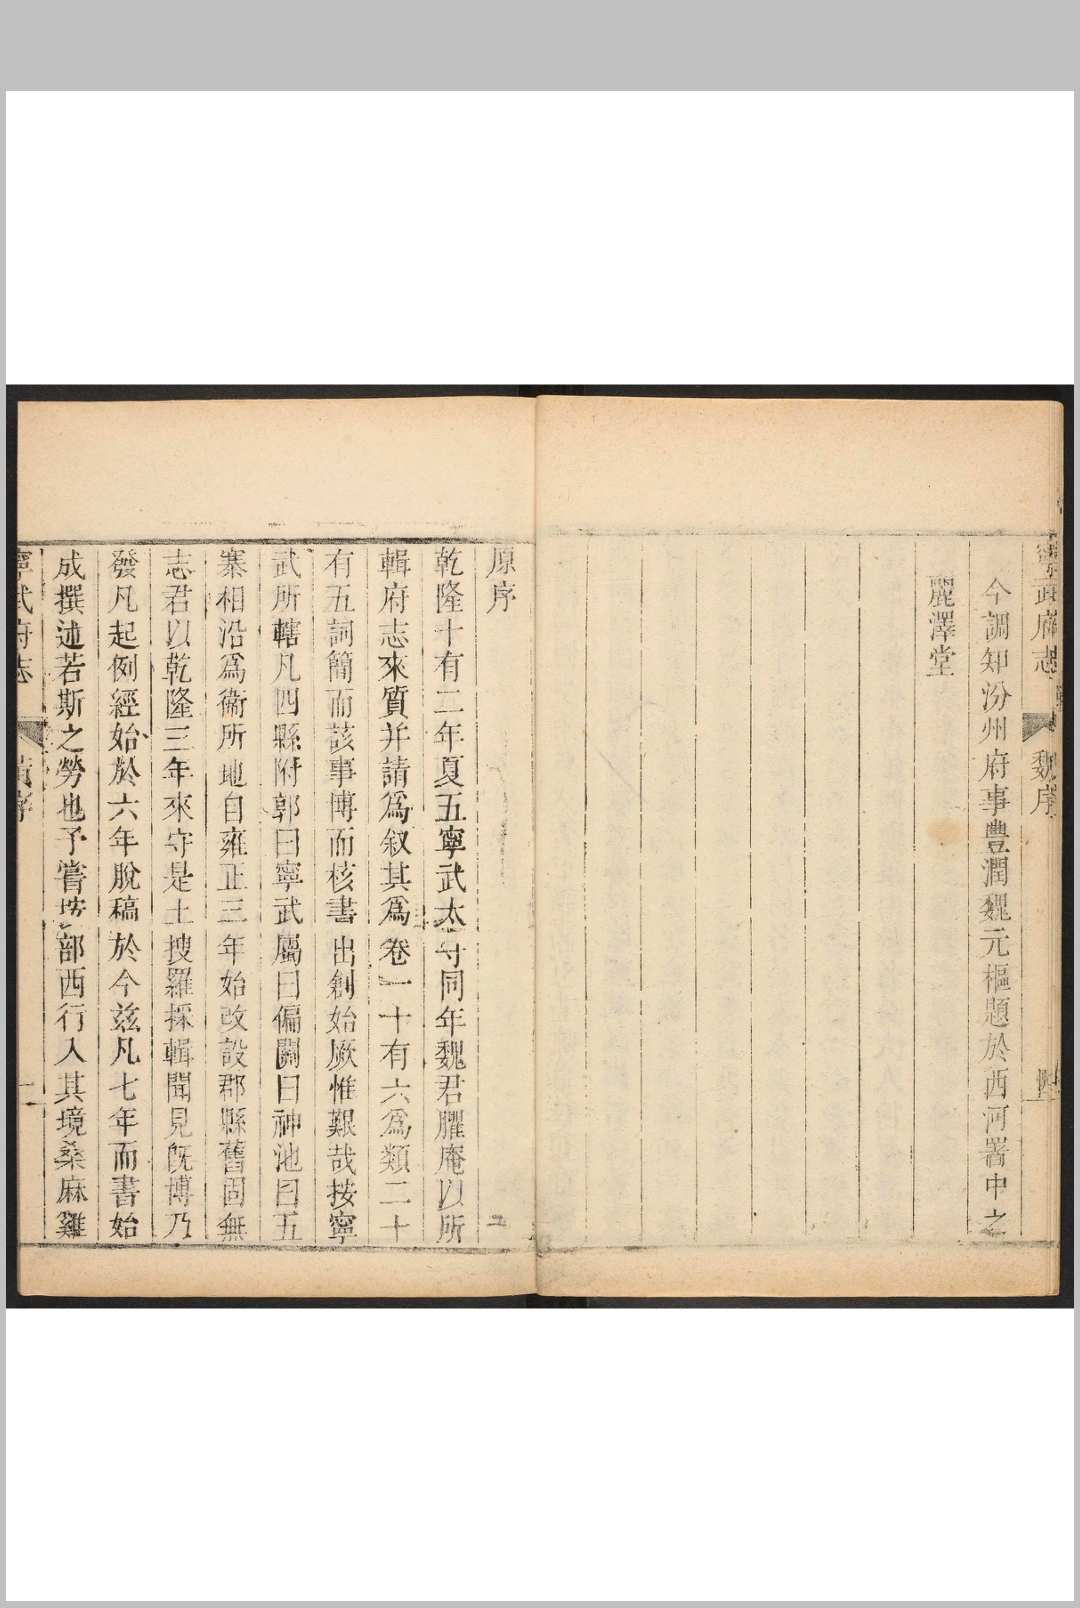 寧武府志
魏序
今調知汾州府事豐潤魏元樞題於西河署中之
麗澤堂
原序
乾隆十有二年夏五寧武太守同年魏君臞庵以所
輯府志來質并請爲叙其爲卷一十有六爲類二十
有五詞簡而該事博而核書出創始厥惟艱哉按寧
武所轄凡四縣附郭曰寧武屬曰偏關曰神池曰五
寨相沿爲衞所地自雍正三年始改設郡縣舊固無
志君以乾隆三年來守是土搜羅採輯聞見既博乃
發凡起例經始於六年脫稿於今茲凡七年而書始
成撰述若斯之勞也予嘗按部西行入其境桑麻雞
寧武府志